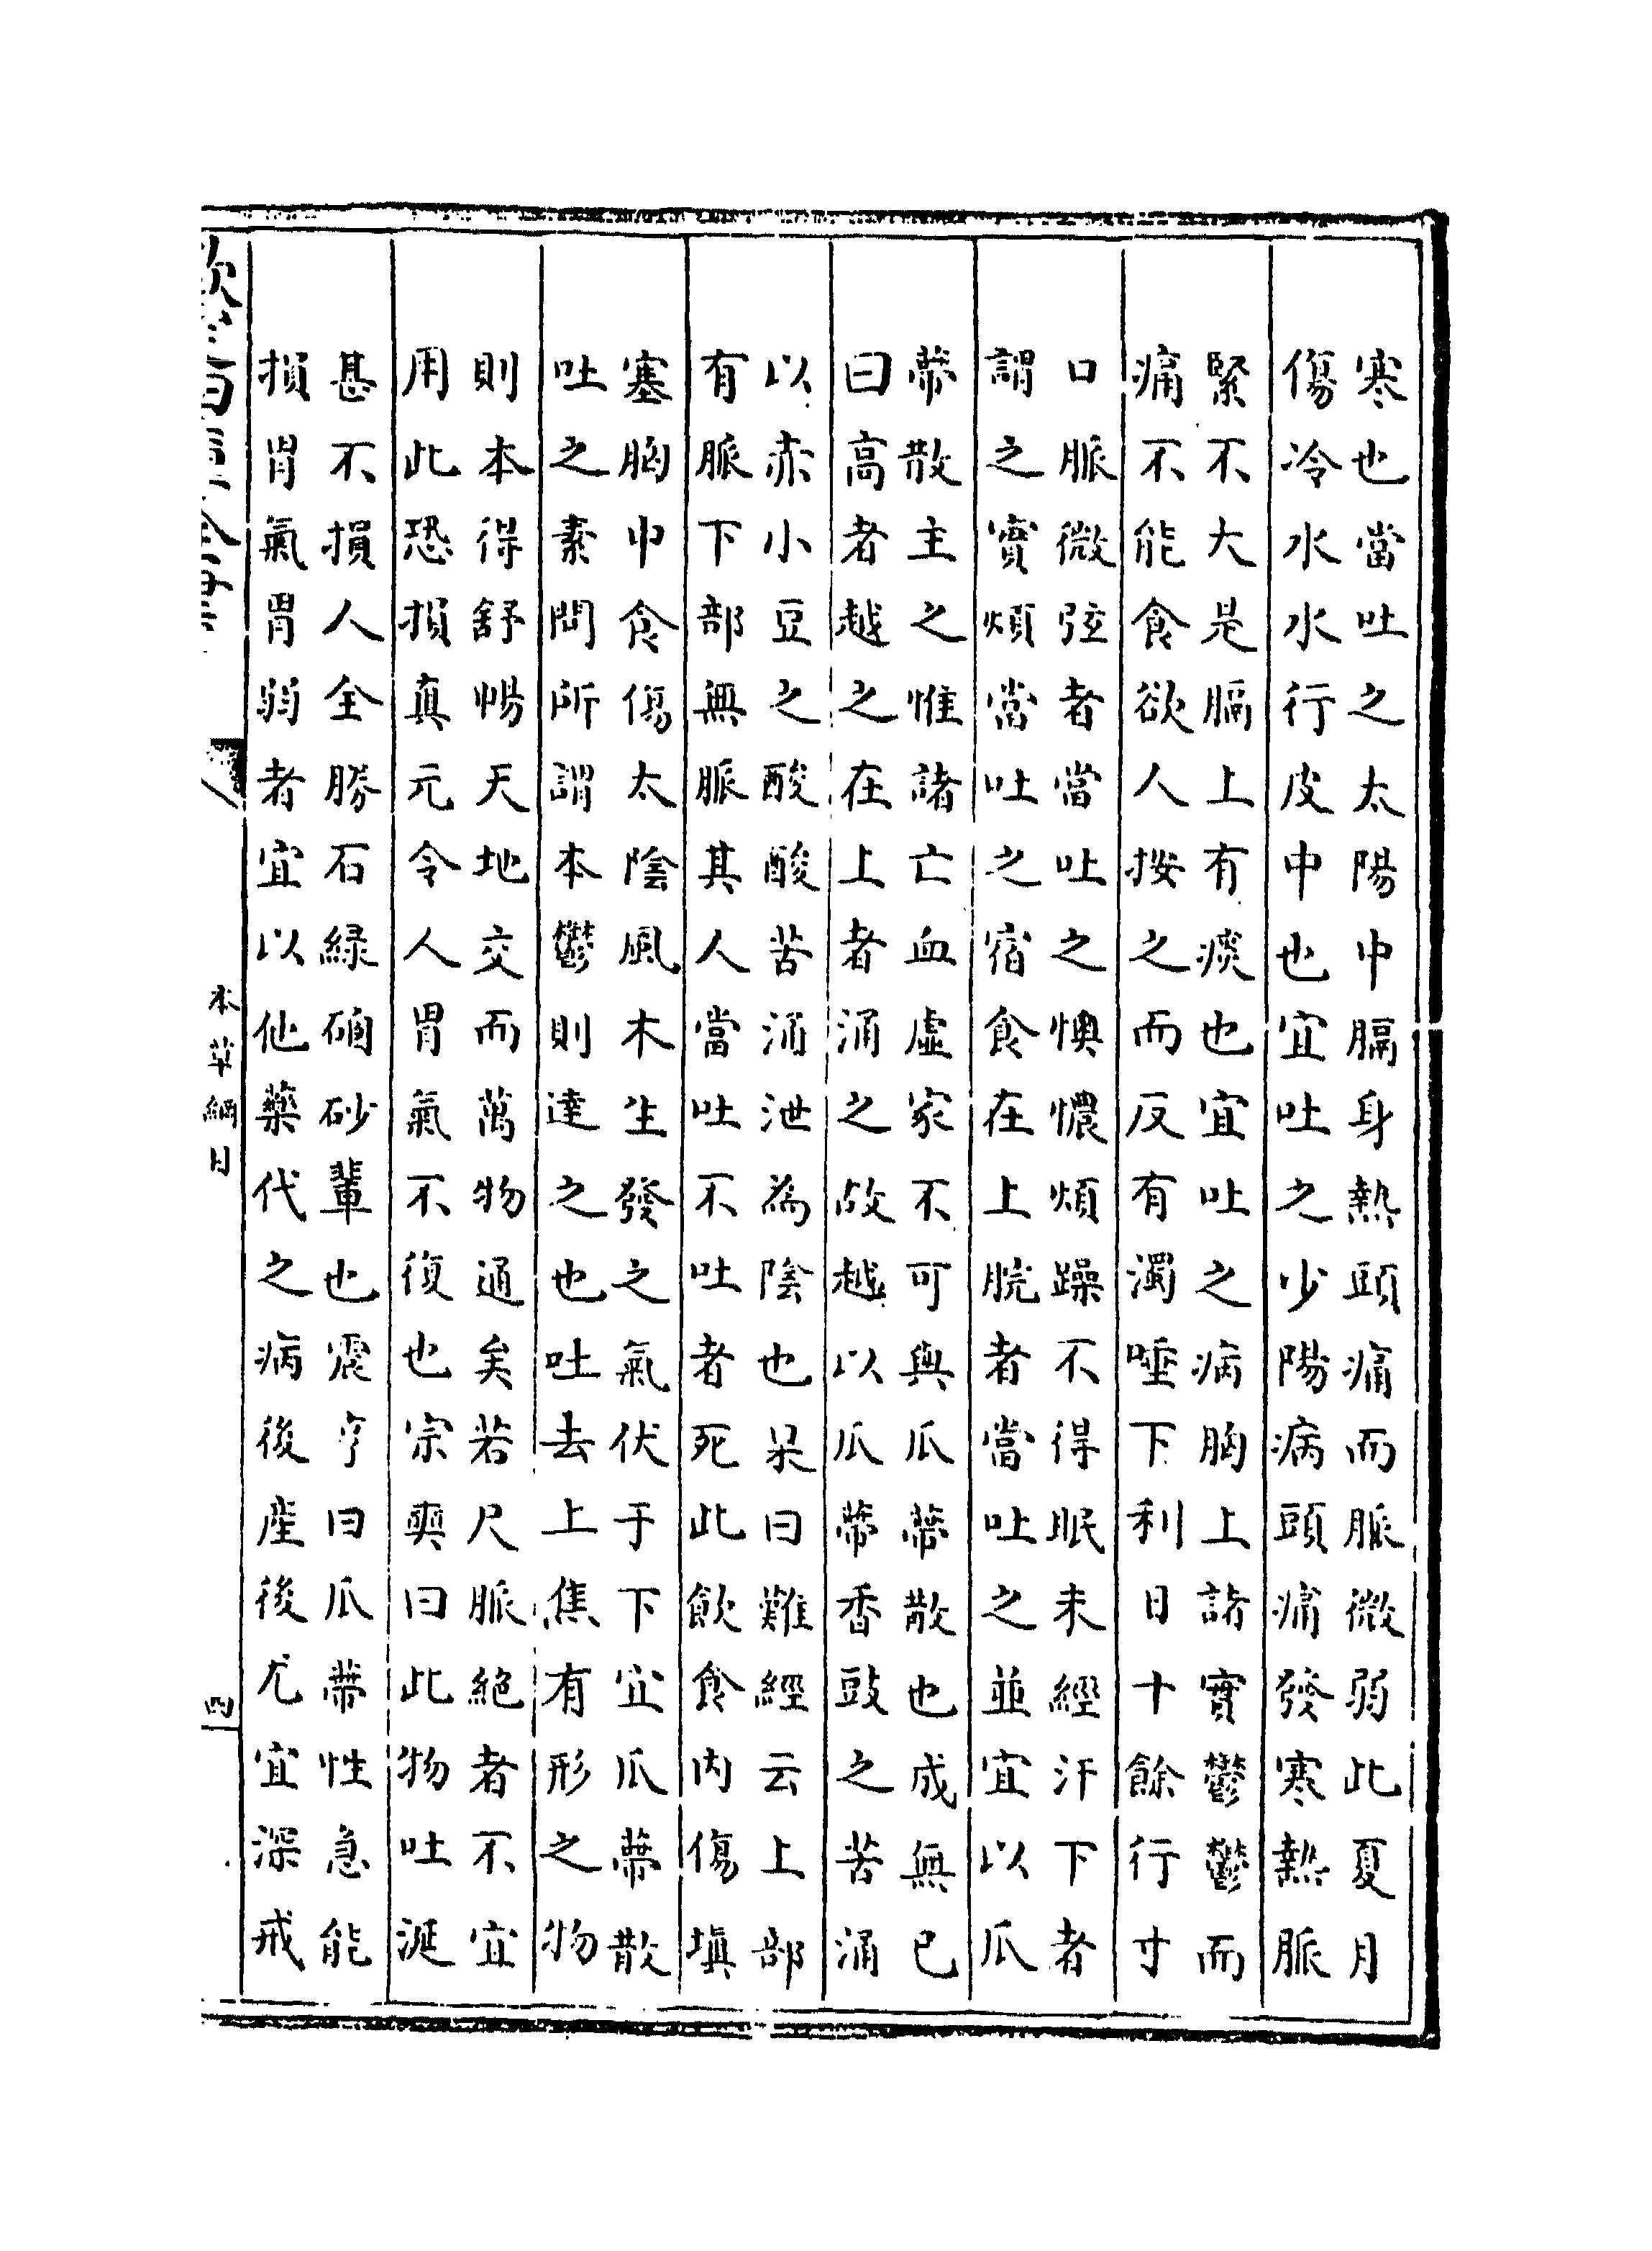 寒也當吐之太陽中膈身熱頭痛而脈微弱此夏月
傷冷水水行皮中也宜吐之少陽病頭痛發寒熱脈
緊不大是膈上有痰也宜吐之病胸上諸實鬱鬱而
痛不能食欲人按之而反有濁唾下利日十餘行寸
口脈微弦者當吐之懊憹煩躁不得眠未經汗下者
謂之實煩當吐之宿食在上脘者當吐之並宜以瓜
蔕散主之惟諸亡血虛家不可與瓜蔕散也成無已
曰高者越之在上者涌之故越以瓜蔕香豉之苦涌
以赤小豆之酸酸苦涌泄為陰也杲曰難經云上部
有脈下部無脈其人當吐不吐者死此飲食內傷填
塞胸中食傷太陰風木生發之氣伏于下宜瓜蔕散
吐之素問所謂本鬱則達之也吐去上焦有形之物
則本得舒暢天地交而萬物通矣若尺脈絕者不宜
用此恐損真元令人胃氣不復也宗奭曰此物吐涎
甚不損人全勝石綠硇砂輩也震亨曰瓜蔕性急能
損胃氣胃弱者宜以他藥代之病後産後尤宜深戒
本草綱目
四